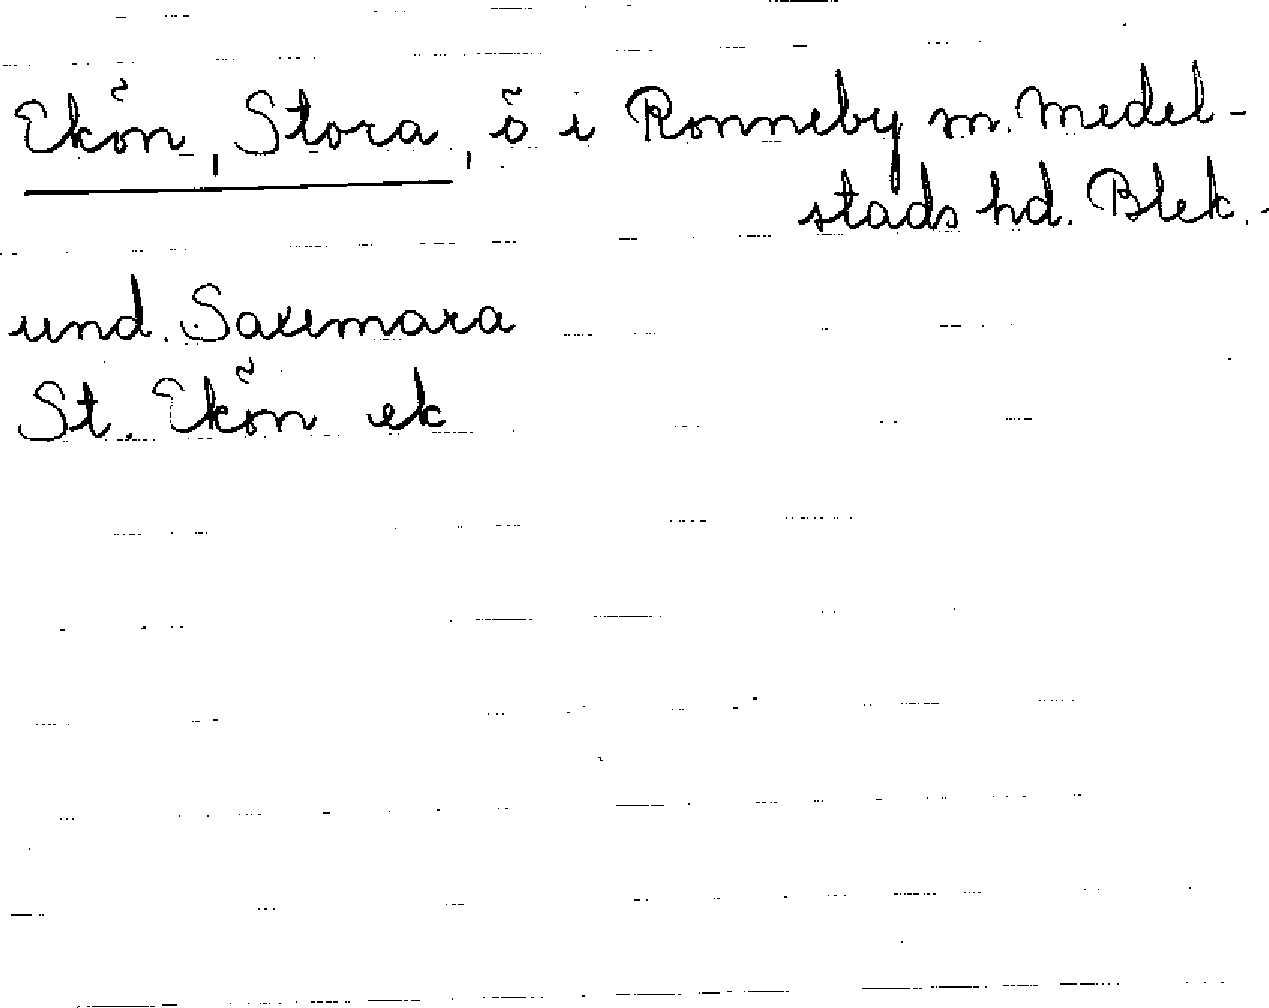 Ekön, Stora, ö i Ronneby m. Medel-
stads hd. Blek.
und. Saxemara
St. Ekön ek